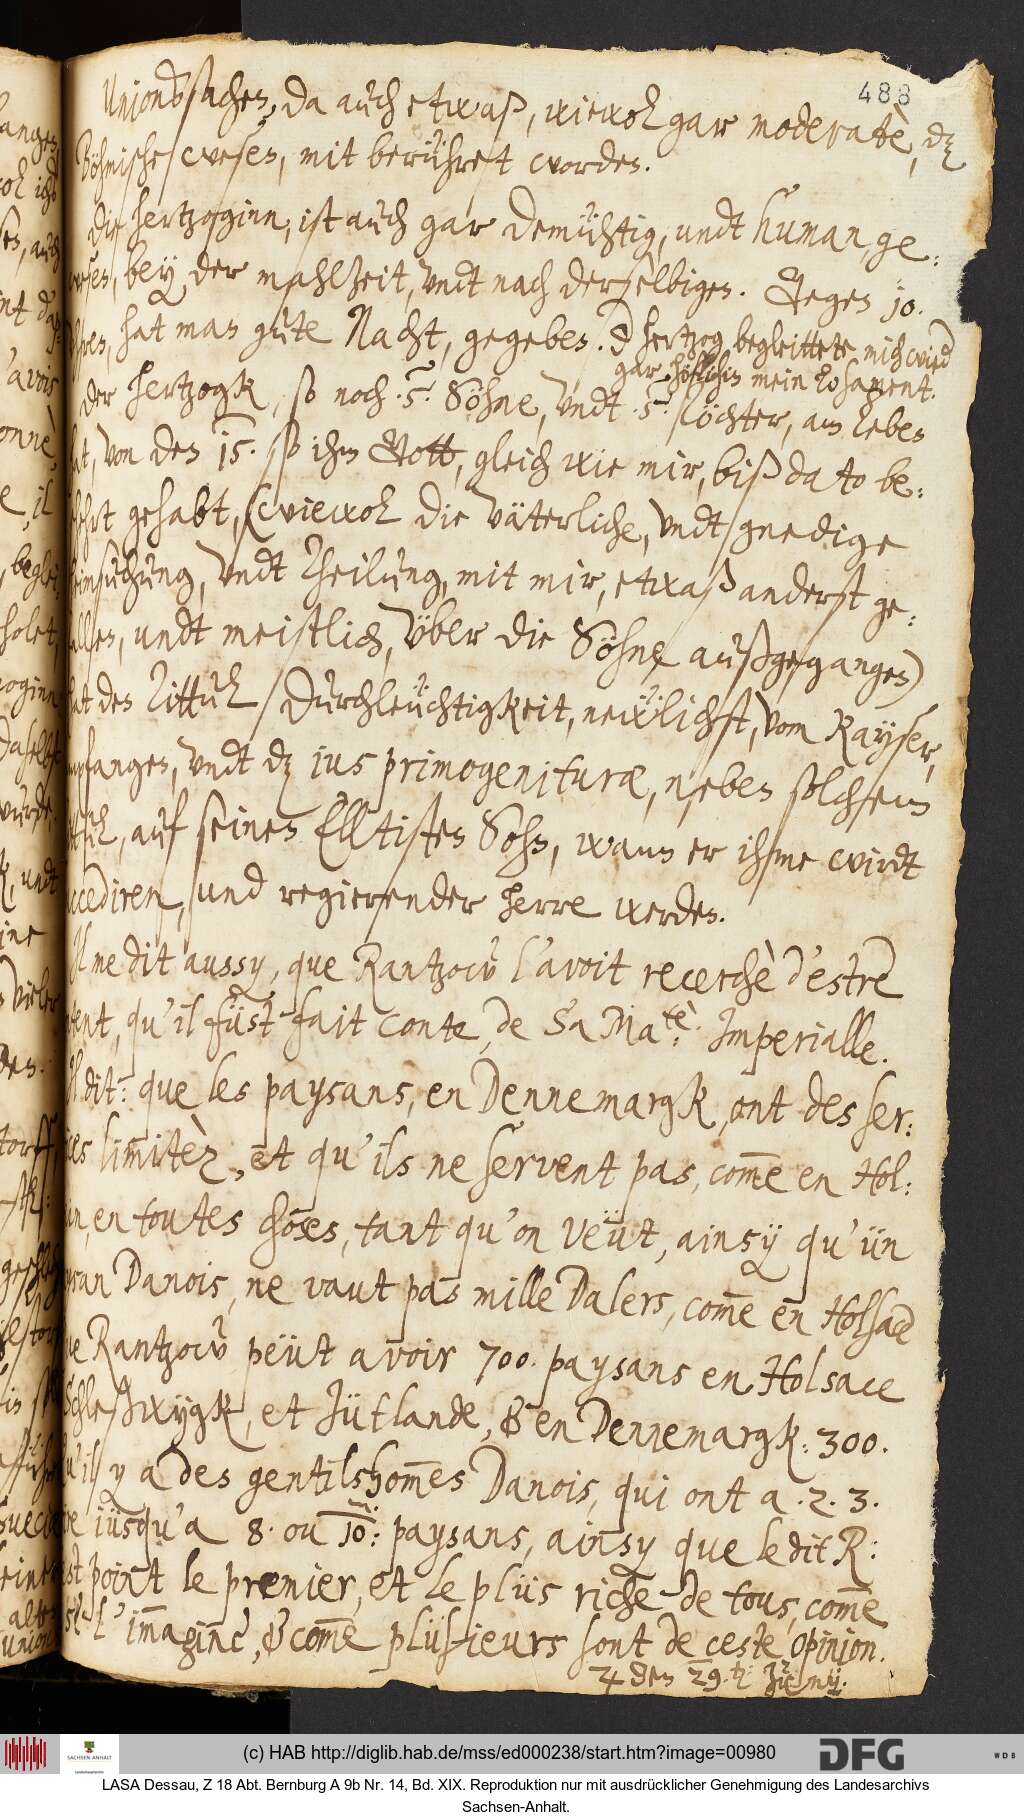 488
Unionssachen, da auch etwaß, wiewol gar moderatè, dz
Böhmische wesen, mit berühret worden.
Die Hertzoginn, ist auch gar demühtig, undt human, ge:
wesen, bey der mahlzeit, undt nach derselbigen. Gegen 10.
Uhren, hat man gute Nacht, gegeben. Der Hertzog begleittete mich wied
gar höflich in mein losament.
der Hertzogk, so noch .5. Söhne, undt .5. Töchter, am leben
hat, von den 15. so ihm Gott, gleich wie mir, biß dato be:
schert gehabt, (wiewol die väterliche, undt gnedige
heimsuchung, undt Theilung, mit mir, etwaß anderst ge:
fallen, undt meistlich, über die Söhne, außgegangen)
hat den Tittul Durchleüchtigkeit, neẅlichst, vom Kayser,
empfangen, undt dz ius primogenituræ, neben solchem
Tittul, auf seinen Elltisten Sohn, wann er ihme wirdt
succediren, und regierender herre werden.
Il me dit aussy, que Rantzow l'avoit recerchè d'estre
content, qu'il füst fait conte, de Sa Ma.tè: Imperialle.
Il dit: que les paysans, en Dennemargk, ont des ser:
vices limitèz, et qu'ils ne servent pas, com̅e en Hol:
stein, en toutes choses, tant qu'on veüt, ainsy qu'ün
paysan Danois, ne vaut pas mille Dalers, com̅e en Holsace
que Rantzow peüt avoir 700. paysans en Holsace
Schleßwygk, et Jütlande, & en Dennemargk: 300.
qu'il y a des gentilshom̅es Danois, qui ont a .2. 3.
voire iüsqu'a 8. ou 10: paysans, ainsy que ledit R:
n'est point le premier, et le plüs riche de tous, com̅e
il s'est l'im̅aginè, & com̅e plüsieurs sont de ceste opinion.
♃ den 29.ten: Junij.
(c) HAB http://diglib.hab.de/mss/ed000238/start.htm?image=00980
SACHSEN-ANHALT
DFG
WDB
LASA Dessau, Z 18 Abt. Bernburg A 9b Nr. 14, Bd. XIX. Reproduktion nur mit ausdrücklicher Genehmigung des Landesarchivs
Sachsen-Anhalt.